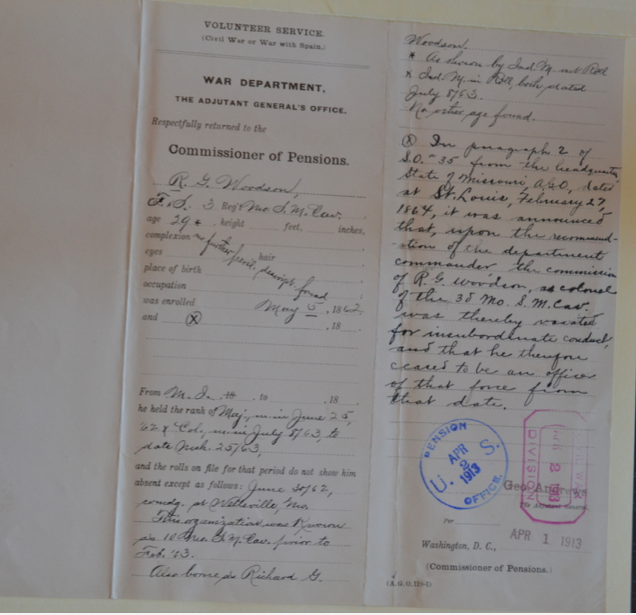 VOLUNTEER SERVICE.
(Civil War or War with Spain.)
WAR DEPARTMENT,
THE ADJUTANT GENERAL'S OFFICE.
Respectfully returned to the
Commissioner of Pensions.
R. G. Woodson,
F. S. 3 Reg't Mo. S. M. Cav.
age 29* , height feet, inches,
complexion no further pers. descript. found
eyes hair
place of birth
occupation
was enrolled May 5, 1862
and ⓧ , 18
From M. I. to , 18
he held the rank of Maj., m. in June 25,
'62 & Col., m. in July 8/63, to
date Mch. 25/63,
and the rolls on file for that period do not show him
absent except as follows: June 30/62,
comdg. at Wellsville, Mo.
This organization was known
as 10 Mo. S. M. Cav. prior to
Feb. '63.
Also borne as Richard G.
Woodson.
* As shown by Ind. M. out Roll
x Ind. M. in Roll, both dated
July 8/63.
No other age found.
ⓧ In paragraph 2 of
S.O. 35 from the headquarters
State of Missouri, A.G.O., dated
at St. Louis, February 27,
1864, it was announced
that, upon the recommend-
ation of the department
commander the commission
of R. G. Woodson, as colonel
of the 3d Mo. S. M. Cav.
was thereby vacated
for insubordinate conduct,
and that he therefore
ceased to be an officer
of that force from
that date.
PENSION
APR
2
1913
U. S.
OFFICE
DIVISION
2 1913
Geo. Andrews
The Adjutant General.
Per
APR 1 1913
Washington, D. C.,
(Commissioner of Pensions.)